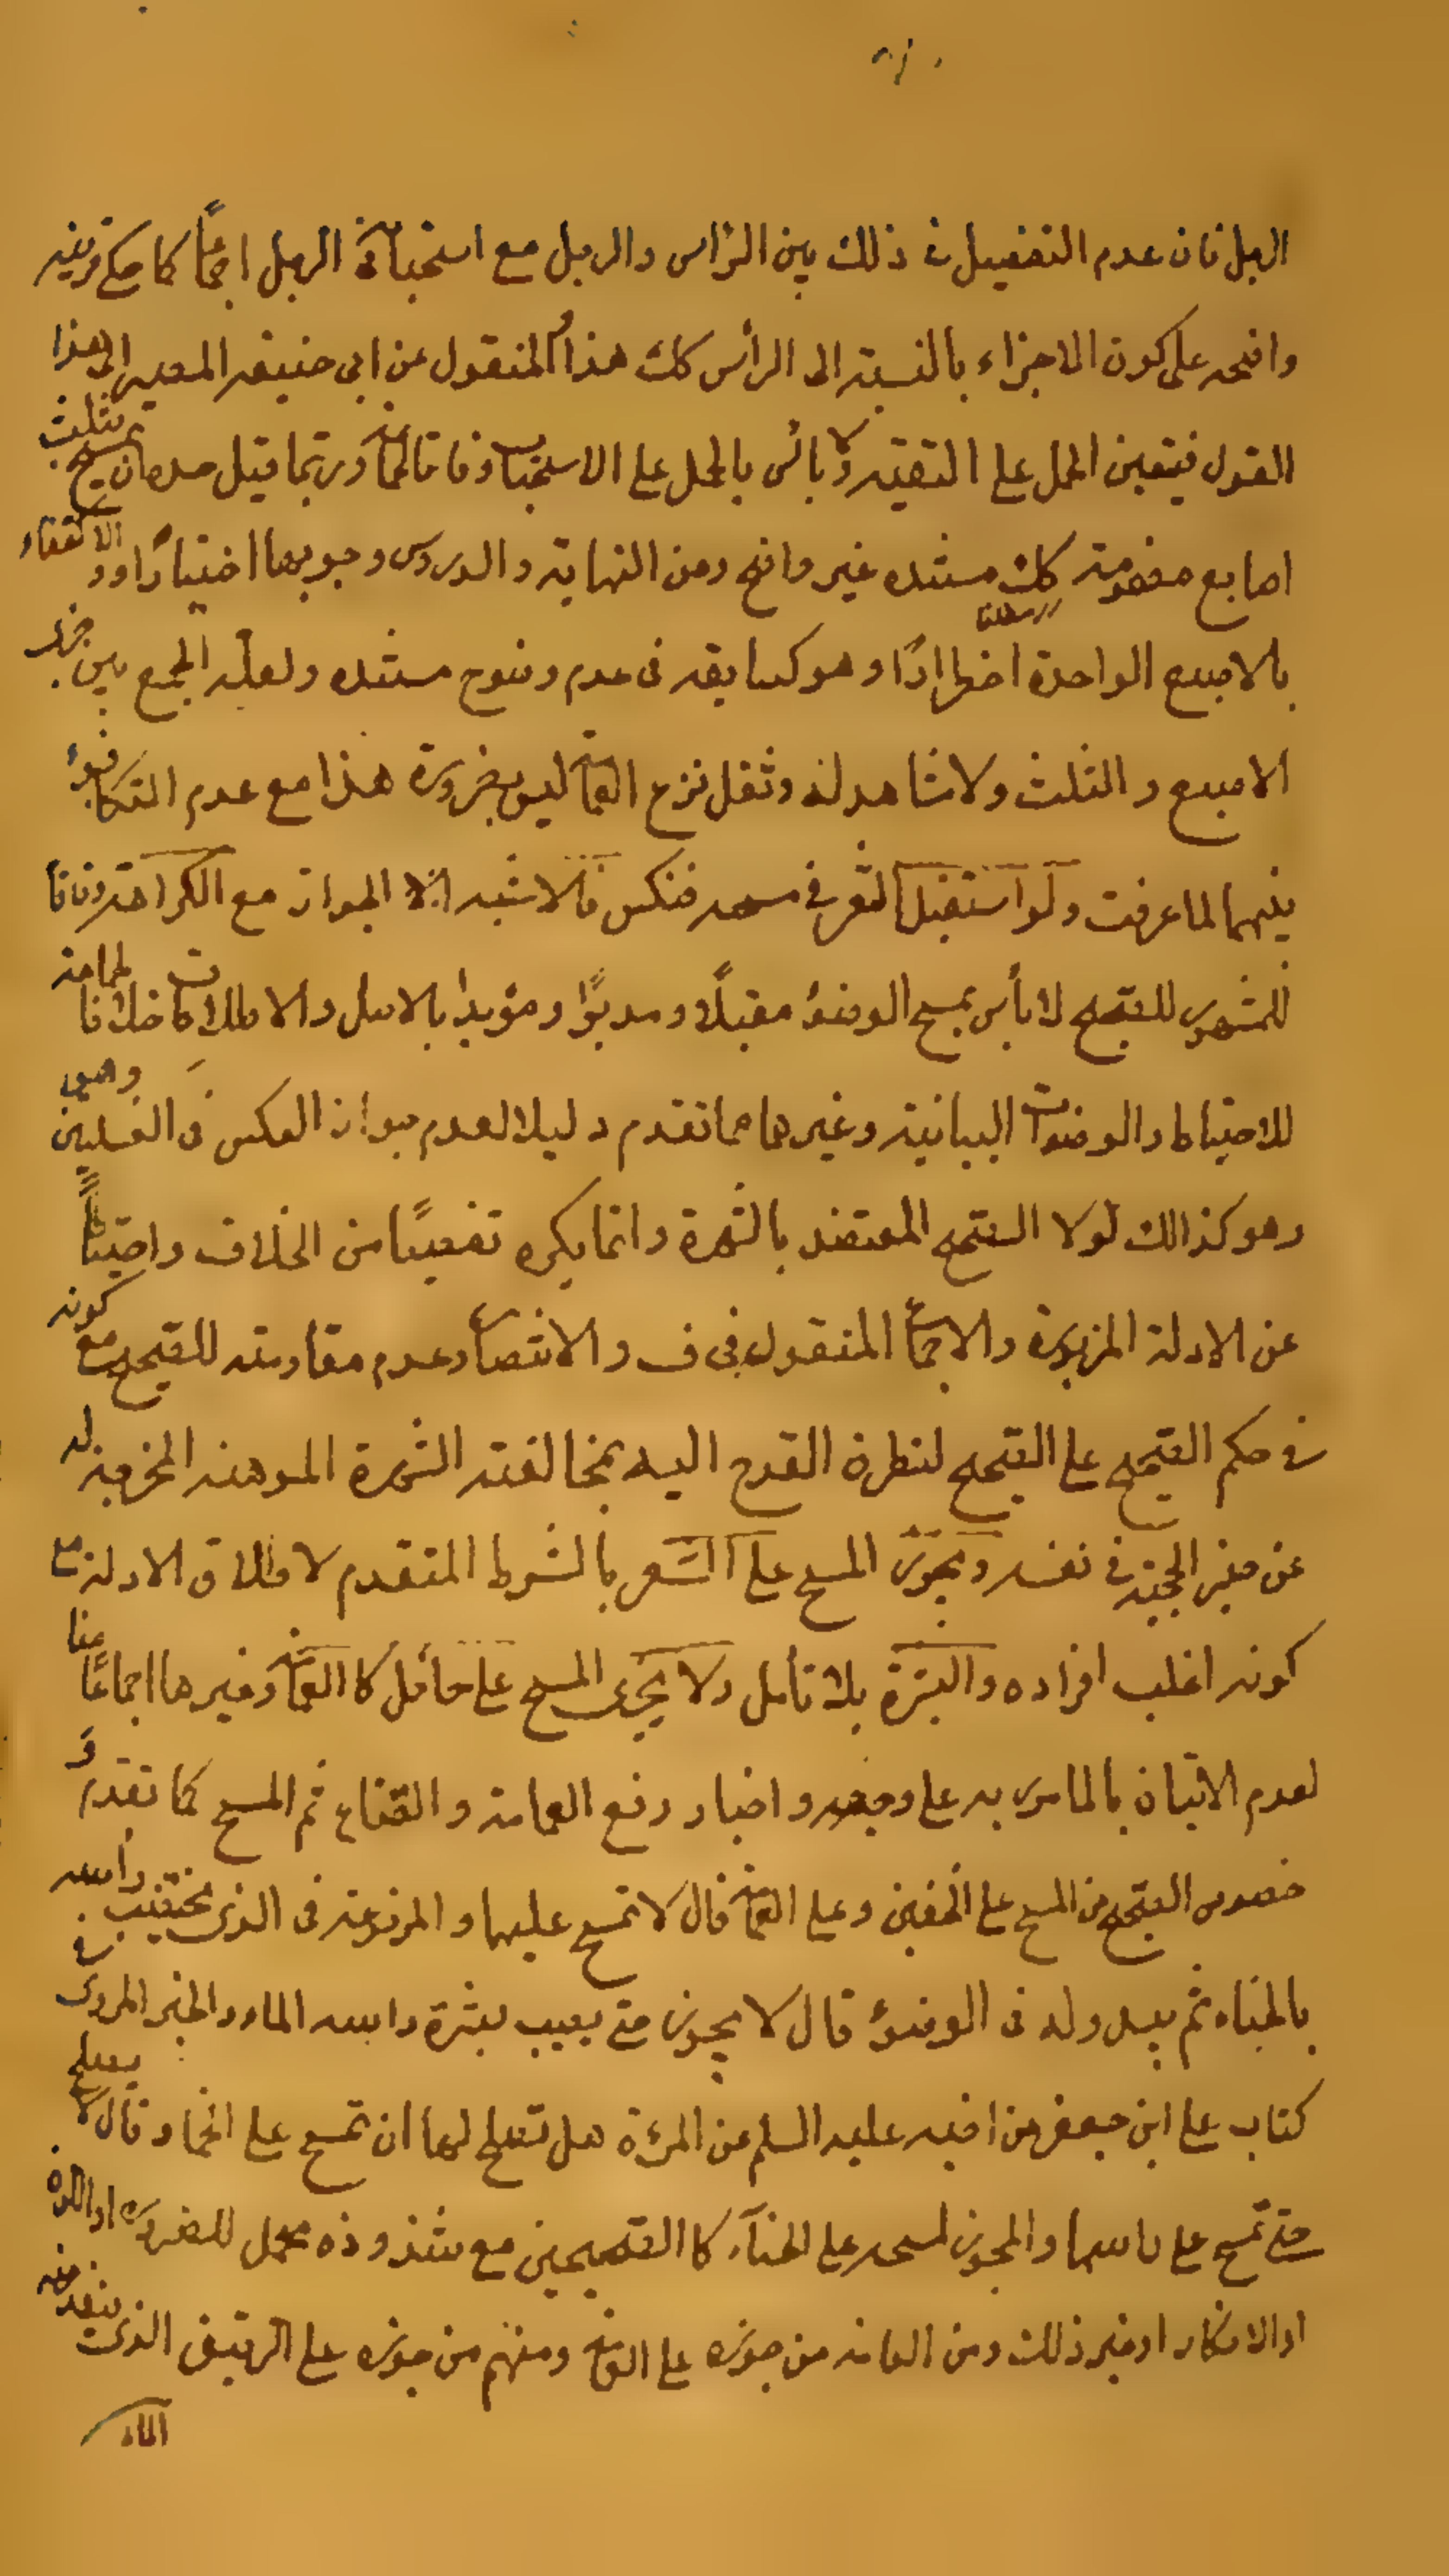 الرجل فان عدم التفصيل في ذلك بين الرأس والرجل مع استحبابه في الرجل اجماعًا كما حكي قرينة
واضحة على كون الاجزاء بالنسبة الى الرأس كك هذا والمنقول عن ابي حنيفة المصير الى هذا
القول فيتعين الحمل على التقية ولا بأس بالحمل على الاستحباب وفاقا لجماعة وربما قيل مسح ثلث
اصابع مضمومة كك مستنده غير واضح وعن النهاية والدروس وجوبها اختيارًا والاكتفاء
بالاصبع الواحدة اضطرارًا وهو كسابقه في عدم وضوح مستنده ولعله الجمع بين خبري
الاصبع والثلث ولا شاهد له وثقل نزع العمامة ليس بضرورة هذا مع عدم التكافؤ
بينهما لما عرفت ولو استقبل الشعر في مسحه فنكس فالاشبه الجواز مع الكراهة وفاقا
للمشهور للصحيح لا بأس بمسح الوضوء مقبلًا ومدبرًا ومؤيدا بالاصل والاطلاقات خلافا لجماعة
للاحتياط والوضوءات البيانية وغيرها مما تقدم دليلا لعدم جواز العكس في الغسلين وهو
وهو كذالك لولا الصحيح المعتضد بالشهرة وانما يكره تفصيًا من الخلاف واحتياطًا
عن الادلة المزبورة والاجماع المنقول في ف والانتصار وعدم مقاومته للصحيح مع كونه
في حكم الصحيح على الصحيح لتطرق القدح اليه بمخالفته الشهرة الموهنة المخرجة له
عن حيز الحجية في نفسه ويجوز المسح على الشعر بالشرط المتقدم لاطلاق الادلة مع
كونه اغلب افراده والبشرة بلا تأمل ولا يجزي المسح على حائل كالعمامة وغيرها اجماعًا منا
لعدم الاتيان بالمامور به على وجهه واخبار رفع العمامة والقناع ثم المسح كما تقدم و
خصوص الصحيح عن المسح على الخفين وعلى العمامة قال لا تمسح عليهما والمرفوعة في الذي يختضب رأسه
بالحناء ثم يبدو له في الوضوء قال لا يجوز حتى يصيب بشرة راسه الماء والخبر المروي في
كتاب علي ابن جعفر عن اخيه عليه السلم عن المرئة هل تصلح لها ان تمسح على الخمار قال لا يصلح
حتى تمسح على راسها والمجوز لمسحه على الحناء كالصحيحين مع شذوذه محمل للضرورة او اللون
او الانكار او غير ذلك ومن العامة من جوزه على العمامة ومنهم من جوزه على الرقيق الذي ينفذ منه
الماء